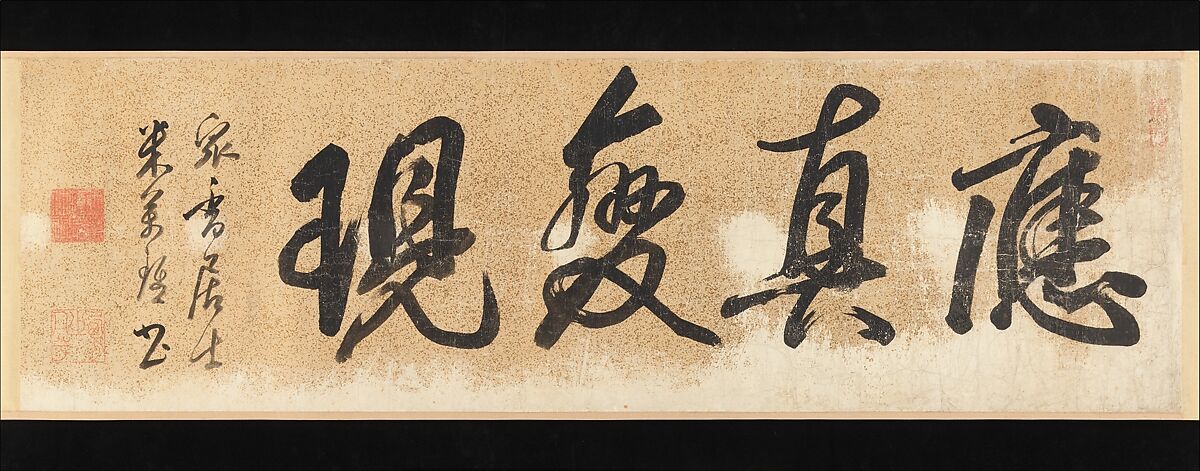 應真變現
眾香居士
米萬鍾書